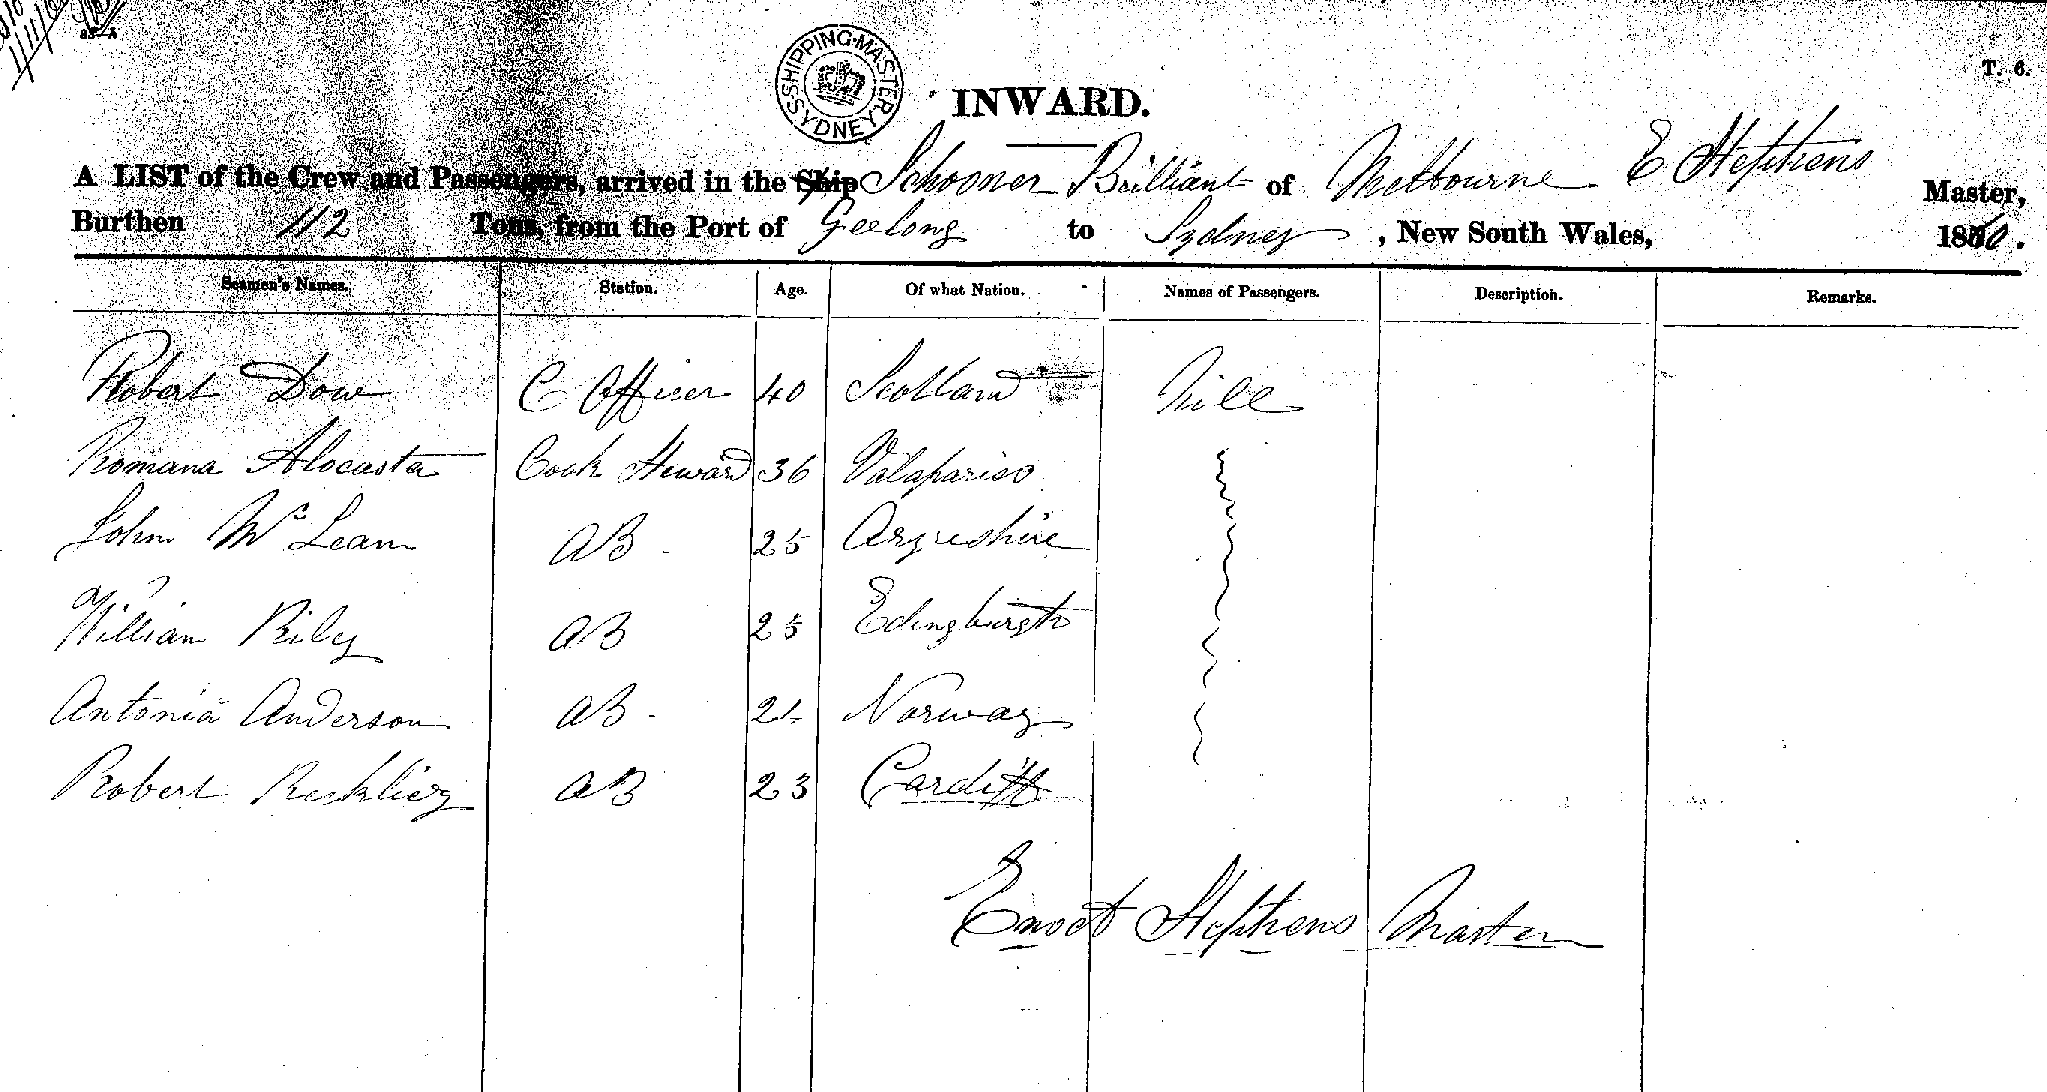 SHIPPING MASTER SYDNEY
T. 6.
INWARD.
A LIST of the Crew and Passengers, arrived in the Ship Schooner Brilliant of Melbourne E Stephens Master,
Burthen 112 Tons, from the Port of Geelong to Sydney, New South Wales, 1860.
Seamen's Names. Station. Age. Of what Nation. Names of Passengers. Description. Remarks.
Robert Dow C Officer 40 Scotland Nill
Romana Alocasta Cook Steward 36 Valapariso
John Mc Lean AB 25 Argueshire
William Riley AB 25 Edingburgh
Antonia Anderson AB 24 Norway
Robert AB 23 Cardiff
Enoch Stephens Master